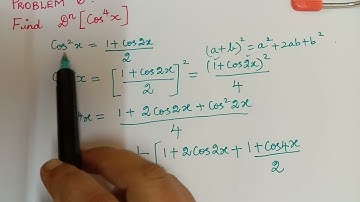 PROBLEM
Find Dⁿ[Cos⁴x]
Cos²x = (1 + Cos2x)/2
(a+b)² = a² + 2ab + b²
= [(1 + Cos2x)/2]² = (1 + Cos2x)²/4
4x = (1 + 2Cos2x + Cos²2x)/4
[1 + 2Cos2x + (1 + Cos4x)/2